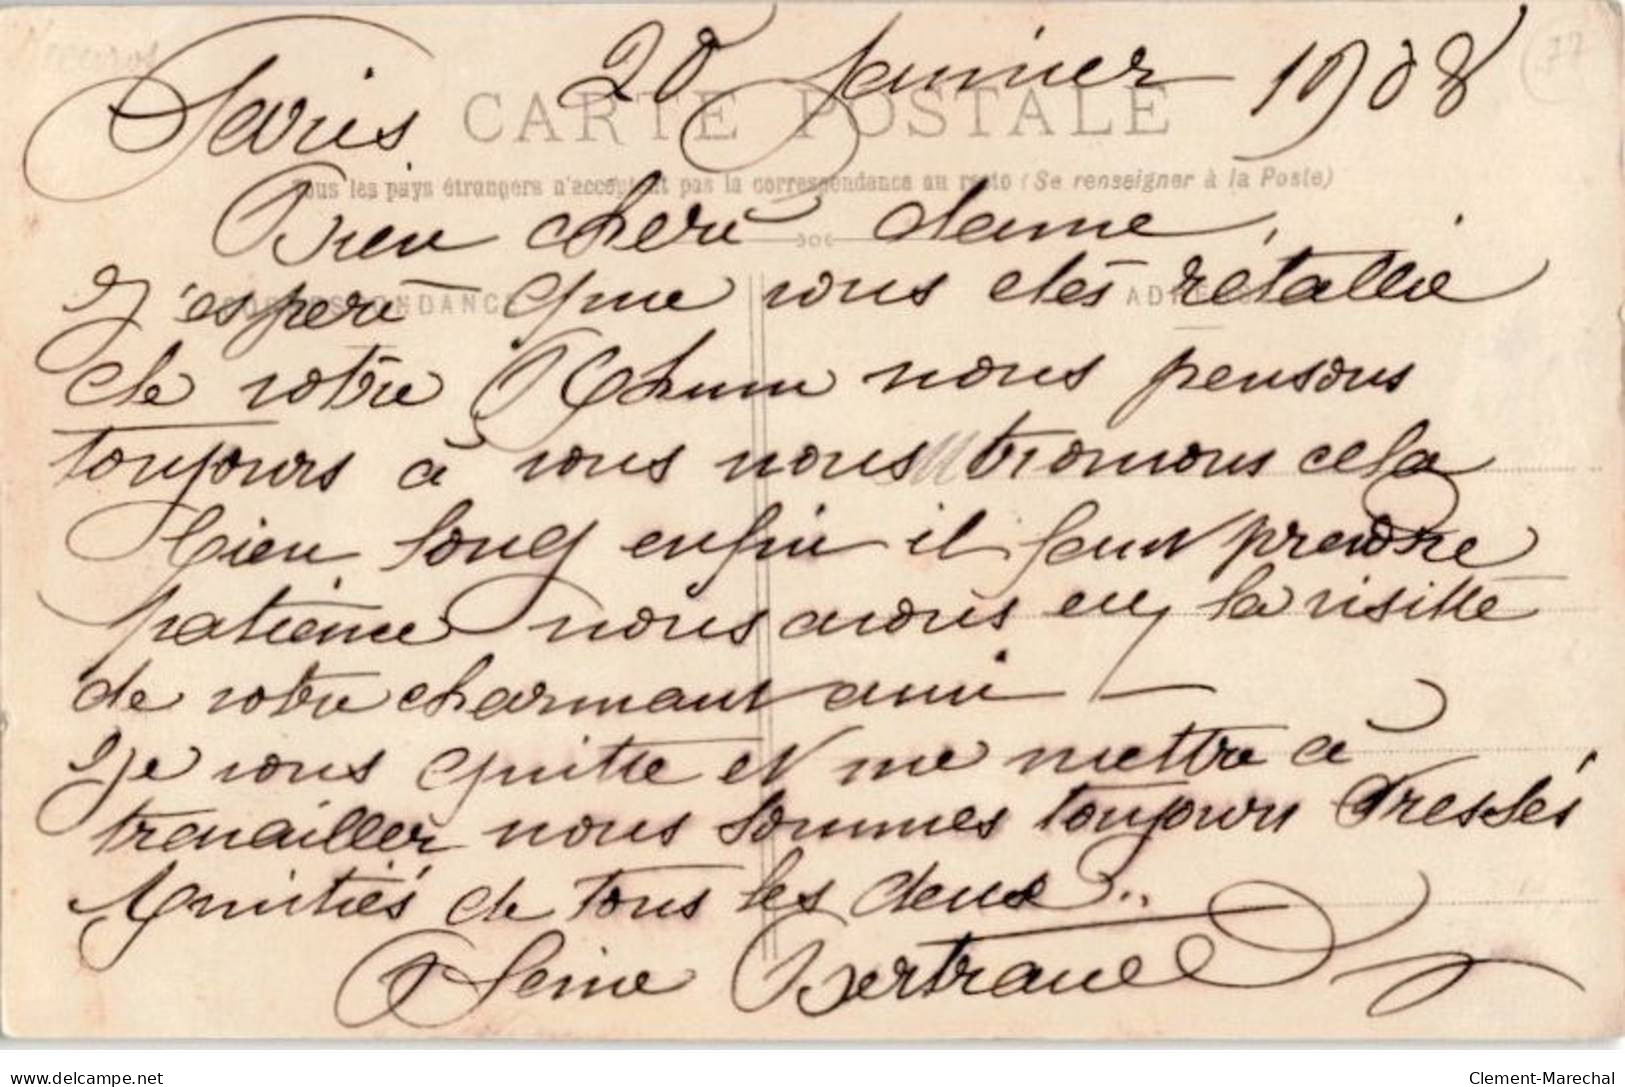 Paris 20 Janvier 1908
CARTE POSTALE
Tous les pays étrangers n'acceptent pas la correspondance au recto (Se renseigner à la Poste)
Bien cheri dame,
CORRESPONDANCE ADRESSE
J'esperé que vous etés rétablie
de votre Rhum nous pensons
toujours à vous nous trouvons cela
bien long enfin il faut prendre
patience nous avons eu la visitte
de votre charmant ami —
Je vous quitte et me mettre à
travailler nous sommes toujours Pressés
Amitiés de tous les deux..
Bertrand
77
delcampe.net
Clement-Marechal